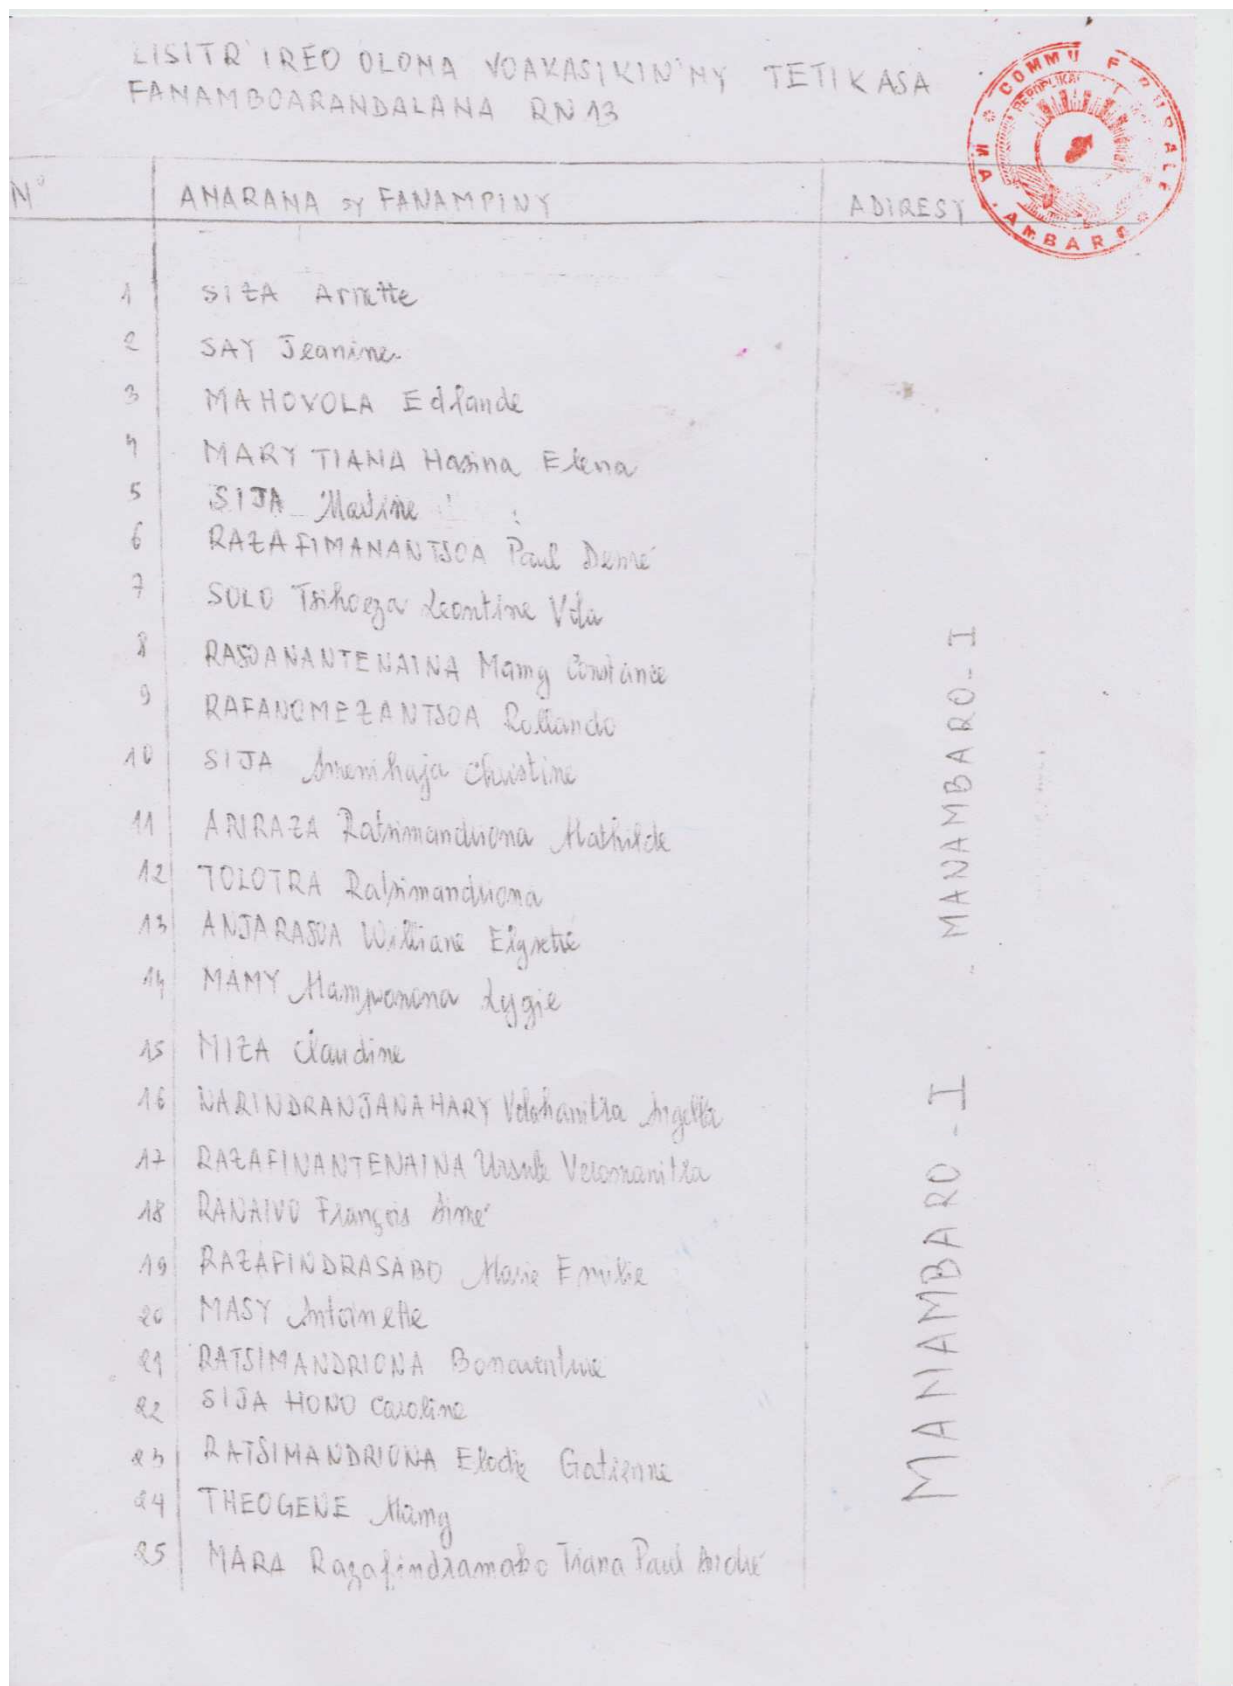 LISITR'IREO OLONA VOAKASIKIN'NY TETIKASA
FANAMBOARANDALANA RN 13
N° ANARANA sy FANAMPINY ADIRESY
COMMU RURALE
REPOBLIKA
1 SIZA Arnette
2 SAY Jeanine
3 MAHOVOLA Edlande
4 MARY TIANA Hasina Elena
5 SIJA Martine
6 RAZAFIMANANTSOA Paul Desiré
7 SOLO Tsihoeza Leontine Vola
8 RASOANANTENAINA Mamy Constance
9 RAFANOMEZANTSOA Rollando
10 SIJA Amenihaja Christine
11 ARIRAZA Ratsimandriona Mathilde
12 TOLOTRA Ratsimandriona
13 ANJARASOA Williane
14 MAMY Mampionona Lygie
15 MIZA Claudine
16 NARINDRANJANAHARY Volohanitra Angella
17 RAZAFINANTENAINA Ursule Veromanitra
18 RANAIVO François Aimé
19 RAZAFINDRASABO Marie Emilie
20 MASY Antoinette
21 RATSIMANDRIONA Bonaventure
22 SIJA HONO Caroline
23 RATSIMANDRIONA Elodie Gatienne
24 THEOGENE Mamy
25 MARA Razafindramabo Tiana Paul André
MANAMBARO-I
MANAMBARO-I